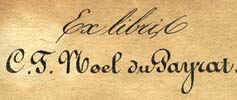 Ex libris
C. F. Noel du Payrat.